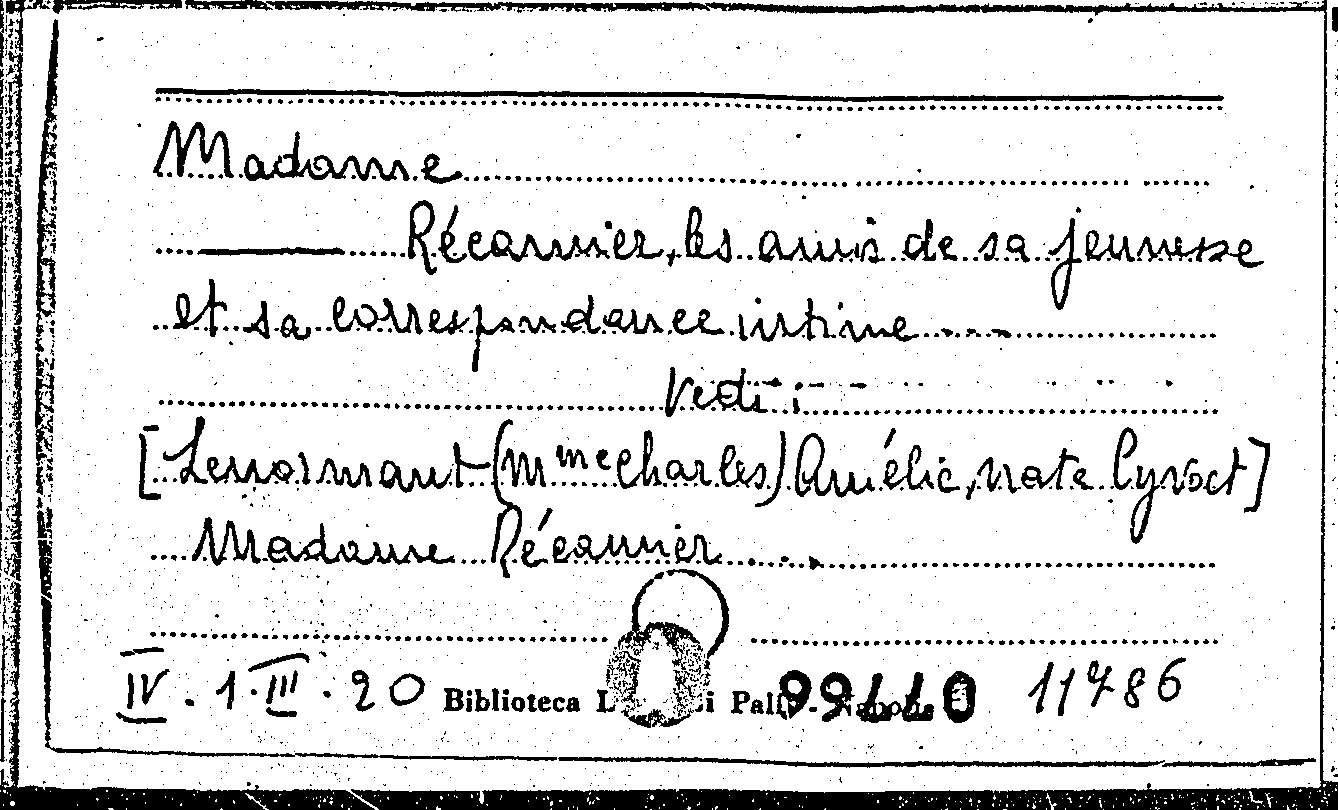 Madame
Récamier, les amis de sa jeunesse
et sa correspondance intime ...
Vedi:
[Lenormant (Mme Charles) Amélie, nata Cyvoct]
Madame Récamier ...
IV. 1. III. 20 Biblioteca 11786